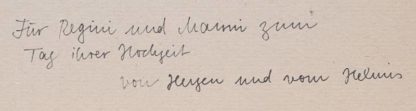 Für Regini und Manni zum
Tag ihrer Hochzeit
von und vom Helmis